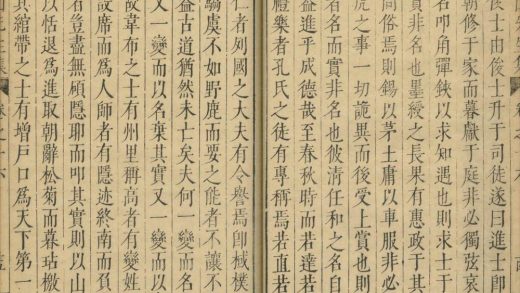 俊士由俊士升于司徒遂曰進士即
朝修于家而暮獻于庭非必獨弦哀
名叩角彈鋏以求知遇也則求士于
實非名也墨綬之長果有惠政于其
尚俗焉則錫以茅土庸以車服非必
虎之事一切詭異而後受上賞也則
者名而實非名也彼清任和之名自
益進乎成德哉至春秋時而若達若
禮樂者孔氏之徒有專稱焉若直若
仁者列國之大夫有令譽焉卽棫樸
騶虞不如野鹿而要之能者不讓不
益古道猶然未亡矣夫何一變而
一變而以名棄其實又一變而
故韋布之士有州里稱高者有變姓
故席而為人師者有隱迹終南而負
者豈盡無碩隱耶而叩其實則以山
以恬退為進取朝辭松菊而暮玷檄
其綰帶之士有增戶口為天下第一